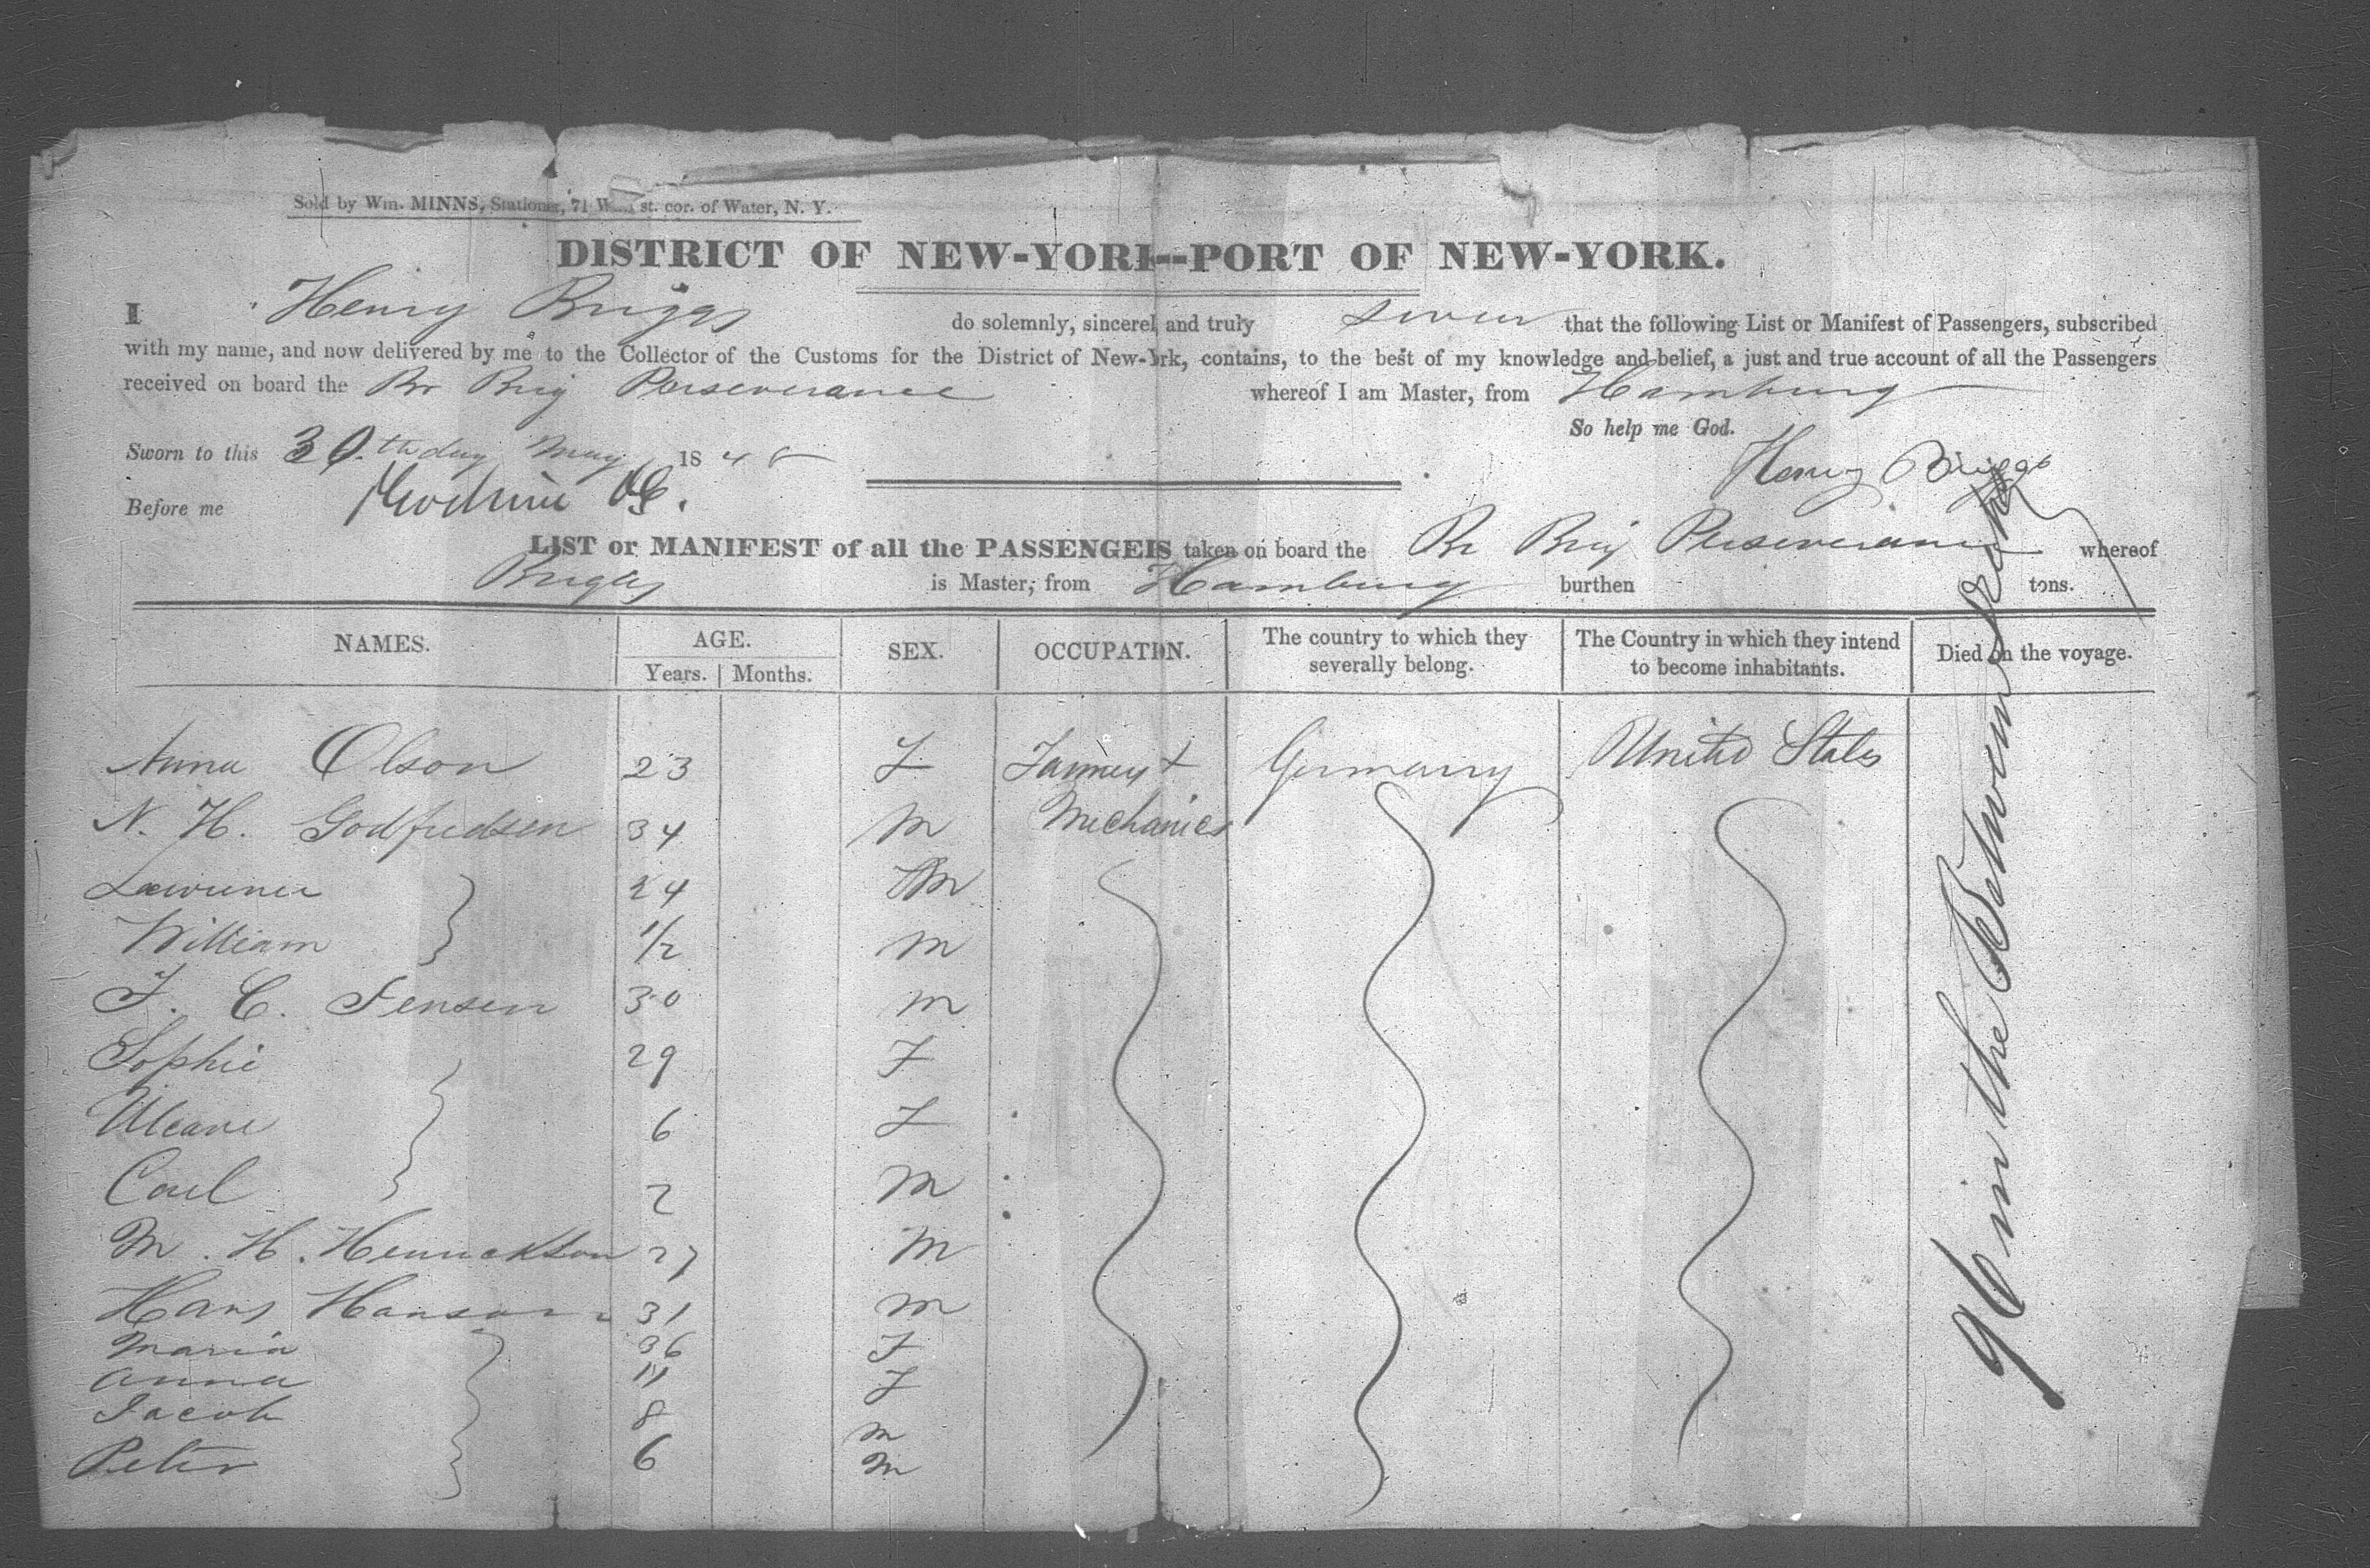 Sold by Wm. MINNS, Stationer, 71 W st. cor. of Water, N. Y.
DISTRICT OF NEW-YORK--PORT OF NEW-YORK.
I Henry Briggs do solemnly, sincerel and truly swear that the following List or Manifest of Passengers, subscribed
with my name, and now delivered by me to the Collector of the Customs for the District of New-York, contains, to the best of my knowledge and belief, a just and true account of all the Passengers
received on board the Br Brig Perseverance whereof I am Master, from Hamburg
So help me God.
Sworn to this 30th day May 184
Henry Briggs
Before me
LIST or MANIFEST of all the PASSENGERS taken on board the Br Brig Perseverance whereof
Briggs is Master, from Hamburg burthen tons.
NAMES. AGE. SEX. OCCUPATION. The country to which they severally belong. The Country in which they intend to become inhabitants. Died on the voyage.
Years. Months.
Anna Olson 23 F Farmers + Germany United States
N. H. Godfredsen 34 M Mechanics
24 M
William 1/2 M
J. C. Jensen 30 M
Sophie 29 F
6 F
Carl 2 M
M. H. Henrickson 27 M
Hans Hanson 31 M
Maria 36 F
Anna 11 F
Jacob 8 M
Peter 6 M
96 in the Between Decks